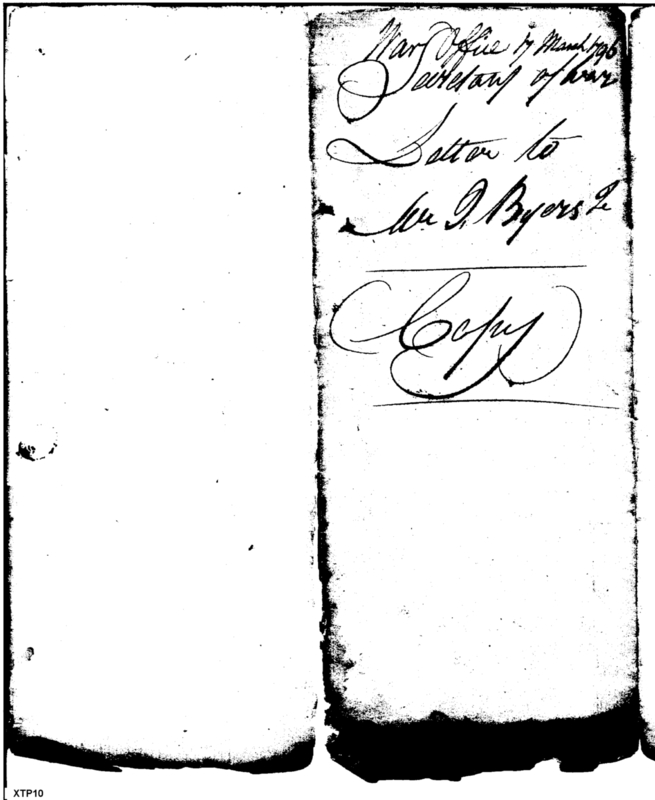 War Office 17 March 1796
Secretary of War
Letter to
Mr J. Byers
Copy
XTP10